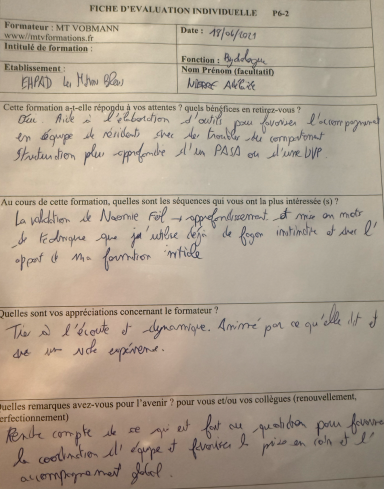 FICHE D'EVALUATION INDIVIDUELLE P6-2
Formateur : MT VOBMANN
www//mtvformations.fr
Date : 18/06/2021
Intitulé de formation :
Fonction : Psychologue
Etablissement :
EHPAD Les
Nom Prénom (facultatif)
Cette formation a-t-elle répondu à vos attentes ? quels bénéfices en retirez-vous ?
Oui. Aide à l'élaboration d'outils pour favoriser l'accompagnement
en équipe de résidents avec des troubles du comportement
Structuration plus approfondie d'un PASA ou d'une UVP
Au cours de cette formation, quelles sont les séquences qui vous ont la plus intéressée (s) ?
La validation de Naomie Feil → approfondissement et mise en mots
de technique que j'utilise déjà de façon instinctive et avec l'
apport de ma formation initiale
Quelles sont vos appréciations concernant le formateur ?
Très à l'écoute et dynamique. Animé par ce qu'elle dit et
avec une riche expérience.
Quelles remarques avez-vous pour l'avenir ? pour vous et/ou vos collègues (renouvellement,
perfectionnement)
Rendre compte de ce qui est fait au quotidien pour favoriser
la coordination d'équipe et favoriser la prise en soin et l'
accompagnement global.